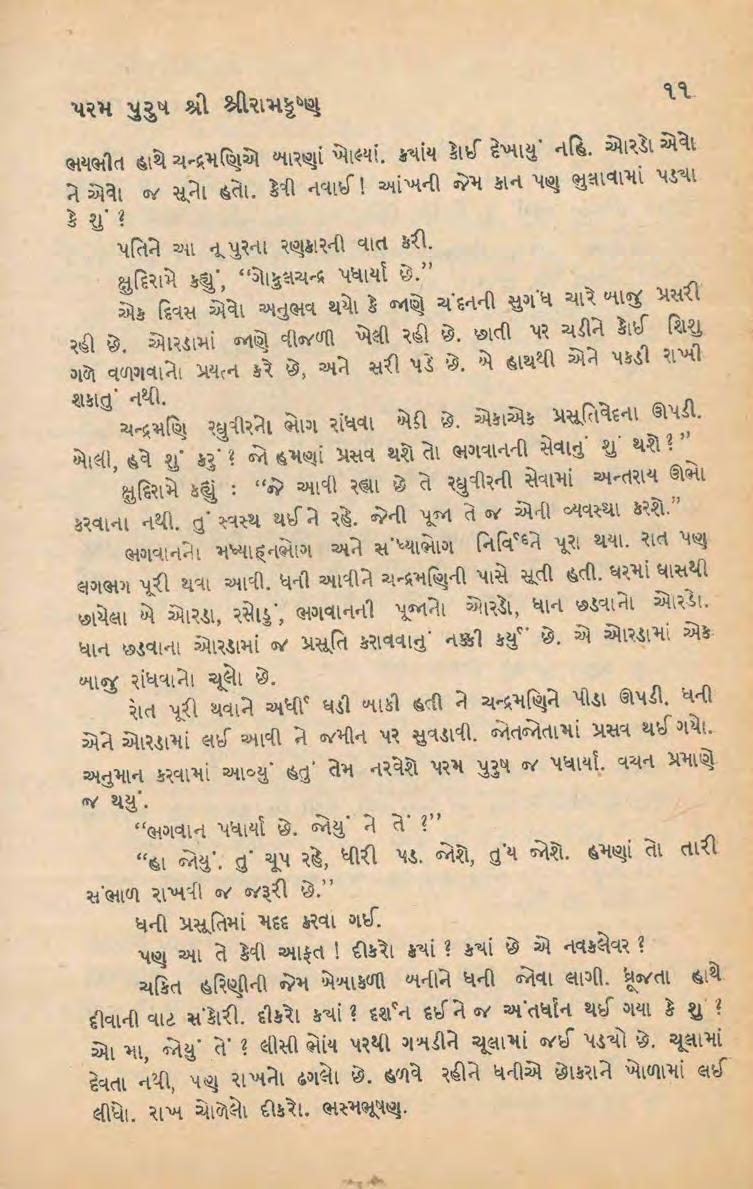 પરમ પુરુષ શ્રી શ્રીરામકૃષ્ણ
૧૧
ભયભીત હાથે ચન્દ્રમણિએ બારણાં ખોલ્યાં. ક્યાંય કોઈ દેખાયું નહિ. ઓરડો એવો
ને એવો જ સૂનો હતો. કેવી નવાઈ ! આંખની જેમ કાન પણ ભુલાવામાં પડ્યા
કે શું ?
પતિને આ નૂપુરના રણકારની વાત કરી.
ક્ષુદિરામે કહ્યું, “ગોકુલચન્દ્ર પધાર્યા છે.”
એક દિવસ એવો અનુભવ થયો કે જાણે ચંદનની સુગંધ ચારે બાજુ પ્રસરી
રહી છે. ઓરડામાં જાણે વીજળી ખેલી રહી છે. છાતી પર ચડીને કોઈ શિશુ
ગળે વળગવાનો પ્રયત્ન કરે છે, અને સરી પડે છે. બે હાથથી એને પકડી રાખી
શકાતું નથી.
ચન્દ્રમણિ રઘુવીરનો ભોગ રાંધવા બેઠી છે. એકાએક પ્રસૂતિવેદના ઊપડી.
બોલી, હવે શું કરું ? જો હમણાં પ્રસવ થશે તો ભગવાનની સેવાનું શું થશે ?”
ક્ષુદિરામે કહ્યું : “જે આવી રહ્યા છે તે રઘુવીરની સેવામાં અન્તરાય ઊભો
કરવાના નથી. તું સ્વસ્થ થઈને રહે. જેની પૂજા તે જ એની વ્યવસ્થા કરશે.”
ભગવાનનો મધ્યાહ્નભોગ અને સંધ્યાભોગ નિર્વિઘ્ને પૂરા થયા. રાત પણ
લગભગ પૂરી થવા આવી. ધની આવીને ચન્દ્રમણિની પાસે સૂતી હતી. ઘરમાં ઘાસથી
છાયેલા બે ઓરડા, રસોડું, ભગવાનની પૂજાનો ઓરડો, ધાન છડવાનો ઓરડો.
ધાન છડવાના ઓરડામાં જ પ્રસૂતિ કરાવવાનું નક્કી કર્યું છે. એ ઓરડામાં એક
બાજુ રાંધવાનો ચૂલો છે.
રાત પૂરી થવાને અર્ધી ઘડી બાકી હતી ને ચન્દ્રમણિને પીડા ઊપડી. ધની
એને ઓરડામાં લઈ આવી ને જમીન પર સુવડાવી. જોતજોતામાં પ્રસવ થઈ ગયો.
અનુમાન કરવામાં આવ્યું હતું તેમ નરવેશે પરમ પુરુષ જ પધાર્યા. વચન પ્રમાણે
જ થયું.
“ભગવાન પધાર્યા છે. જોયું ને તેં ?”
“હા જોયું. તું ચૂપ રહે, ધીરી પડ. જોશે, તુંય જોશે. હમણાં તો તારી
સંભાળ રાખવી જ જરૂરી છે.”
ધની પ્રસૂતિમાં મદદ કરવા ગઈ.
પણ આ તે કેવી આફત ! દીકરો ક્યાં ? ક્યાં છે એ નવકલેવર ?
ચકિત હરિણીની જેમ બેબાકળી બનીને ધની જોવા લાગી. ધ્રૂજતા હાથે
દીવાની વાટ સંકોરી. દીકરો ક્યાં ? દર્શન દઈને જ અંતર્ધાન થઈ ગયા કે શું ?
ઓ મા, જોયું તેં ? લીસી ભોંય પરથી ગબડીને ચૂલામાં જઈ પડ્યો છે. ચૂલામાં
દેવતા નથી, પણ રાખનો ઢગલો છે. હળવે રહીને ધનીએ છોકરાને ખોળામાં લઈ
લીધો. રાખ ચોળેલો દીકરો. ભસ્મભૂષણ.